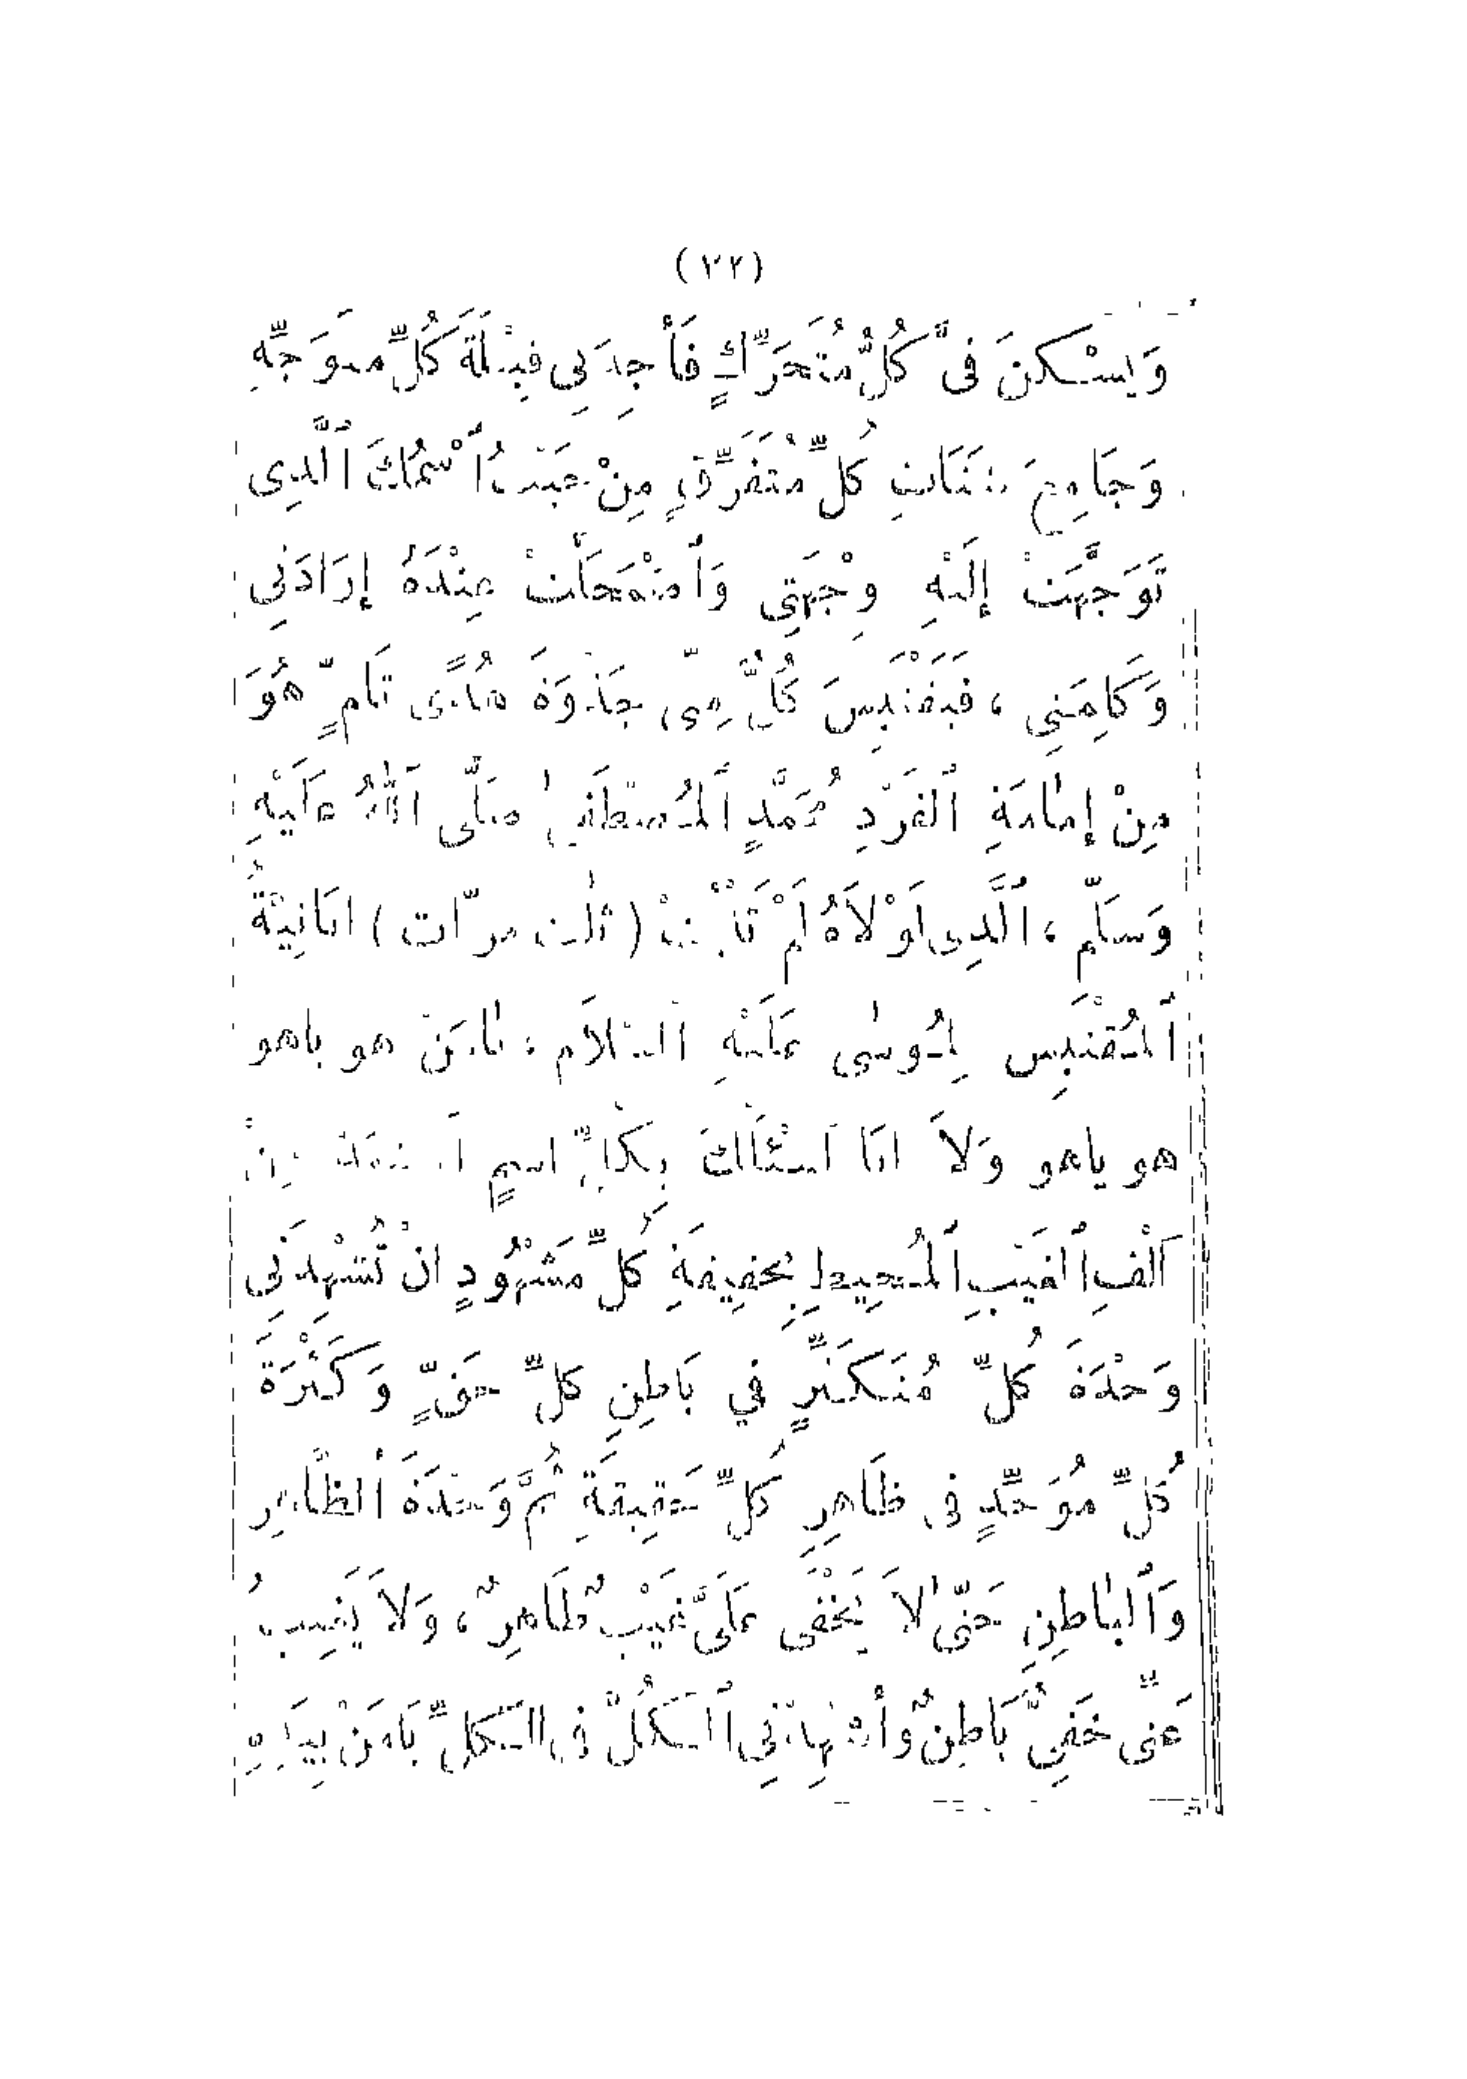 (٢٢)
وَيَسْكُنَ فِيَّ كُلُّ مُتَحَرِّكٍ فَأَجِدَنِي قِبْلَةَ كُلِّ مُتَوَجِّهٍ
وَجَامِعَ شَتَاتِ كُلِّ مُتَفَرِّقٍ مِنْ حَيْثُ ٱسْمُكَ ٱلَّذِى
تَوَجَّهَتْ إِلَيْهِ وِجْهَتِي وَٱضْمَحَلَّتْ عِنْدَهُ إِرَادَتِي
وَكَلِمَتِي ، فَيَقْتَبِسَ كُلٌّ مِنِّى جَذْوَةَ هُدًى تَامٍّ هُوَ
مِنْ إِمَامَةِ ٱلْفَرْدِ مُحَمَّدٍ ٱلْمُصْطَفَىٰ صَلَّى ٱللهُ عَلَيْهِ
وَسَلَّمَ ، ٱلَّذِى لَوْلَاهُ لَمْ تَثْبُتْ (ثلاث مرّات)
ٱلْمُقْتَبِسِ لِمُوسٰى عَلَيْهِ السَّلَام ، يَامَنْ هو ياهو
هو ياهو وَلَا انَا اسْئَلُكَ بِكُلِّ اسمٍ
اَلْفِ ٱلْغَيْبِ ٱلْمُحِيطِ بِحَقِيقَةِ كُلِّ مَشْهُودٍ انْ تُشْهِدَنِي
وَحْدَةَ كُلِّ مُتَكَثِّرٍ فِي بَاطِنِ كُلِّ حَقٍّ وَكَثْرَةَ
كُلِّ مُوَحِّدٍ فى ظَاهِرِ كُلِّ حَقِيقَةِ ثُمَّ وَحْدَةَ ٱلظَّاهِرِ
وَٱلْبَاطِنِ حَتّٰى لَا يَخْفَى عَلَىَّ غَيْبٌ ظَاهِرٌ ، وَلَا يَغِيبُ
عَنِّى خَفِىٌّ بَاطِنٌ وأَنْ تُشْهِدَنِي ٱلْكُلَّ فى الْكُلِّ يَامَنْ بِيَدِهِ